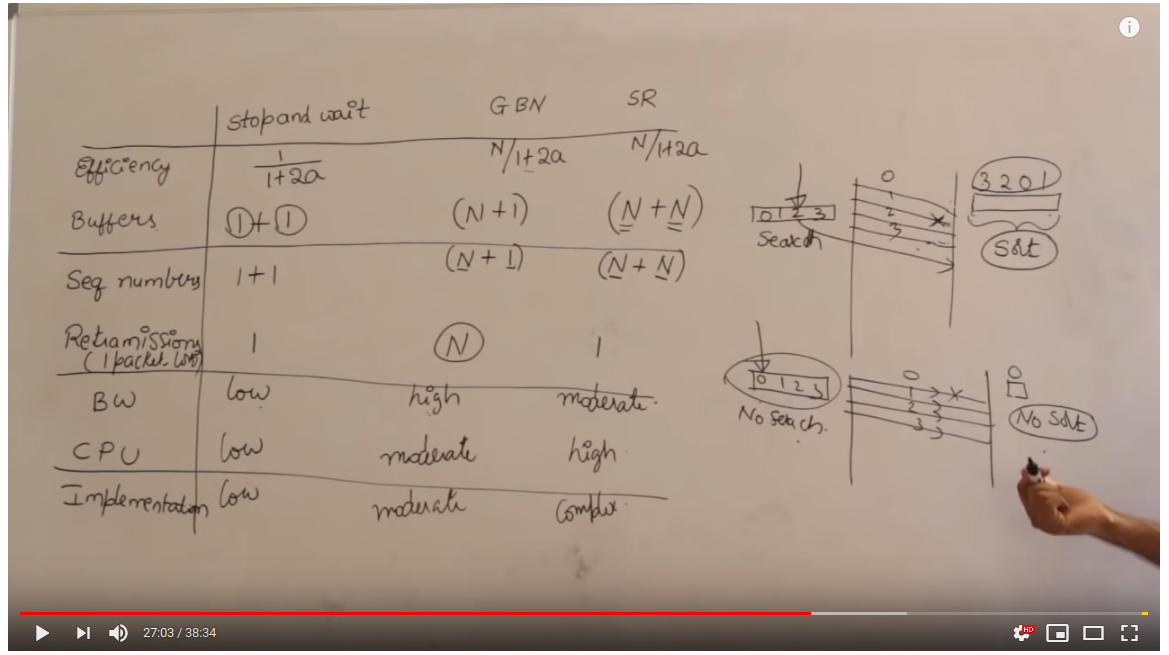 Stop and wait GBN SR
Efficiency 1/1+2a N/1+2a N/1+2a
Buffers 1+1 (N+1) (N+N)
Seq numbers 1+1 (N+1) (N+N)
Retramissions 1 N 1
(1 packet lost)
BW low high moderate
CPU low moderate high
Implementation low moderate complex
0
1
2
3
0 1 2 3
Search
3 2 0 1
Sort
0
1
2
3
0 1 2 3
No search.
0
No Sort
27:03 / 38:34
HD
i